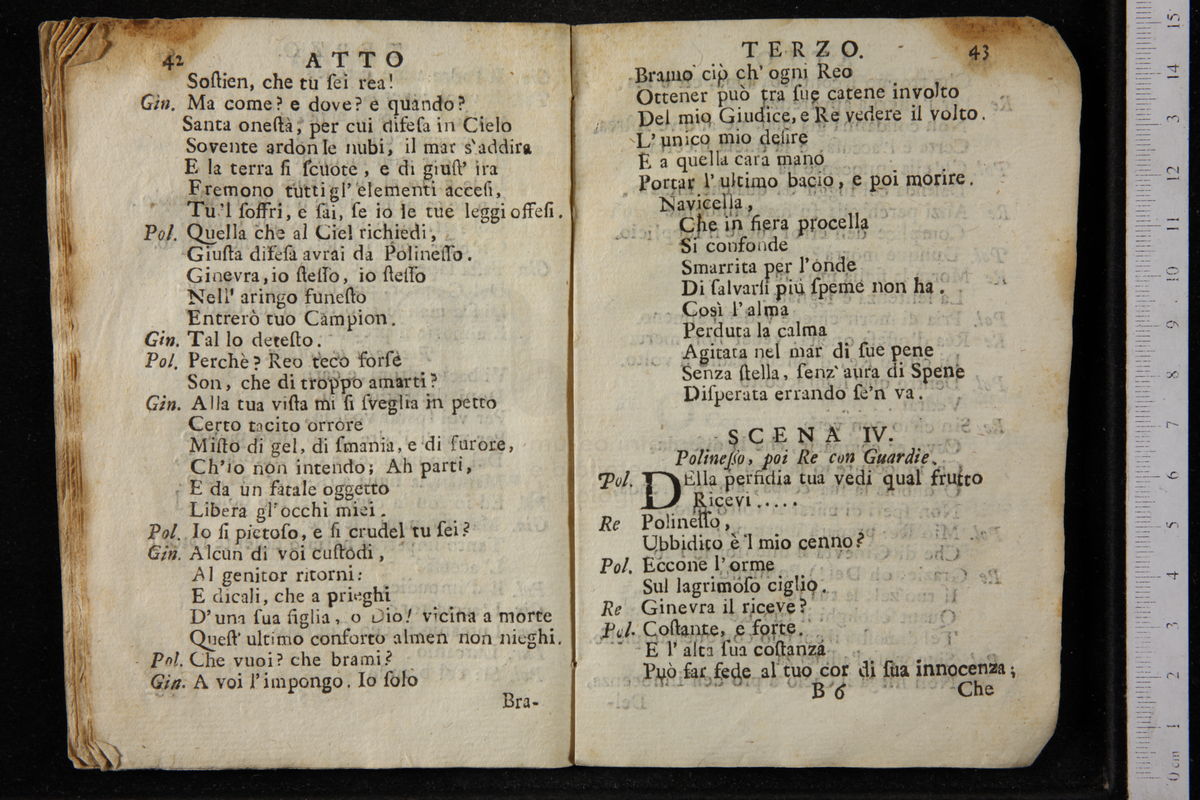 42 ATTO
Soſtien, che tu ſei rea!
Gin. Ma come? e dove? e quando?
Santa oneſtà, per cui difeſa in Cielo
Sovente ardon le nubi, il mar s'addira
E la terra ſi ſcuote, e di giuſt' ira
Fremono tutti gl' elementi acceſi,
Tu 'l ſoffri, e ſai, ſe io le tue leggi offeſi.
Pol. Quella che al Ciel richiedi,
Giuſta difeſa avrai da Polineſſo.
Ginevra, io ſteſſo, io ſteſſo
Nell' aringo funeſto
Entrerò tuo Campion.
Gin. Tal lo deteſto.
Pol. Perchè? Reo teco forſe
Son, che di troppo amarti?
Gin. Alla tua viſta mi ſi ſveglia in petto
Certo tacito orrore
Miſto di gel, di ſmania, e di furore,
Ch'io non intendo; Ah parti,
E da un fatale oggetto
Libera gl'occhi miei.
Pol. Io ſi pietoſo, e ſi crudel tu ſei?
Gin. Alcun di voi cuſtodi,
Al genitor ritorni:
E dicali, che a prieghi
D'una ſua figlia, o Dio! vicina a morte
Queſt' ultimo conforto almen non nieghi.
Pol. Che vuoi? che brami?
Gin. A voi l'impongo. Io ſolo
Bra-
TERZO. 43
Bramo ciò ch' ogni Reo
Ottener può tra ſue catene involto
Del mio Giudice, e Re vedere il volto.
L'unico mio deſire
E a quella cara mano
Portar l'ultimo bacio, e poi morire.
Navicella,
Che in fiera procella
Si confonde
Smarrita per l'onde
Di ſalvarſi più ſpeme non ha.
Così l'alma
Perduta la calma
Agitata nel mar di ſue pene
Senza ſtella, ſenz' aura di Spene
Diſperata errando ſe'n va.
SCENA IV.
Polineſſo, poi Re con Guardie.
Pol. DElla perfidia tua vedi qual frutto
Ricevi.....
Re Polineſſo,
Ubbidito è 'l mio cenno?
Pol. Eccone l'orme
Sul lagrimoſo ciglio.
Re Ginevra il riceve?
Pol. Coſtante, e forte.
E l' alta ſua coſtanza
Può far fede al tuo cor di ſua innocenza;
B 6 Che
15
14
3
12
11
10
9
8
7
6
5
4
3
2
1
0 cm